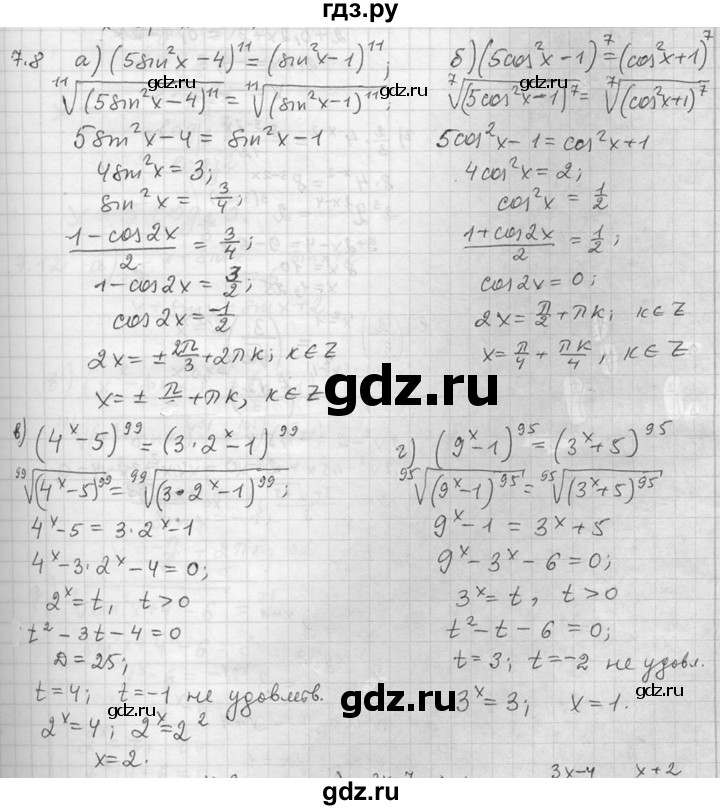 гдз.ру
7.8 а) (5sin²x−4)¹¹ = (sin²x−1)¹¹;
¹¹√(5sin²x−4)¹¹ = ¹¹√(sin²x−1)¹¹;
5sin²x−4 = sin²x−1
4sin²x = 3;
sin²x = 3/4;
(1−cos2x)/2 = 3/4;
1−cos2x = 3/2;
cos2x = −1/2
2x = ±2π/3 + 2πk; k∈Z
x = ± π/ + πk, k∈Z
б) (5cos²x−1)⁷ = (cos²x+1)⁷
⁷√(5cos²x−1)⁷ = ⁷√(cos²x+1)⁷
5cos²x−1 = cos²x+1
4cos²x = 2;
cos²x = 1/2
(1+cos2x)/2 = 1/2;
cos2x = 0;
2x = π/2 + πk; k∈Z
x = π/4 + πk/4, k∈Z
в) (4ˣ−5)⁹⁹ = (3·2ˣ−1)⁹⁹
⁹⁹√(4ˣ−5)⁹⁹ = ⁹⁹√(3·2ˣ−1)⁹⁹;
4ˣ−5 = 3·2ˣ−1
4ˣ−3·2ˣ−4 = 0;
2ˣ = t, t>0
t²−3t−4 = 0
D = 25;
t = 4; t = −1 не удовлтв.
2ˣ = 4; 2ˣ = 2²
x = 2.
г) (9ˣ−1)⁹⁵ = (3ˣ+5)⁹⁵
⁹⁵√(9ˣ−1)⁹⁵ = ⁹⁵√(3ˣ+5)⁹⁵
9ˣ−1 = 3ˣ+5
9ˣ−3ˣ−6 = 0;
3ˣ = t, t>0
t²−t−6 = 0;
t = 3; t = −2 не удовл.
3ˣ = 3; x = 1.
3x−4 x+2
gdz.ru
gdz.ru
gdz.ru
gdz.ru
gdz.ru
gdz.ru
gdz.ru
gdz.ru
gdz.ru
gdz.ru
gdz.ru
gdz.ru
gdz.ru